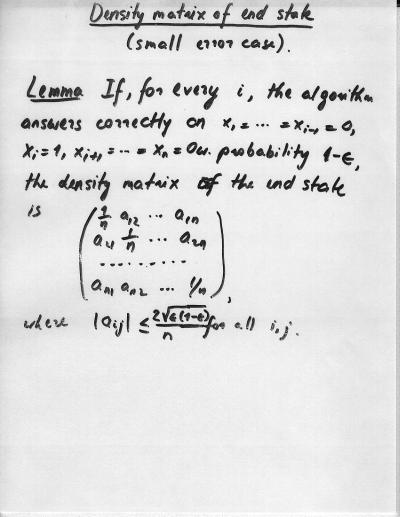 Density matrix of end state
(small error case).
Lemma If, for every i, the algorithm
answers correctly on x₁= ... =xᵢ₋₁=0,
xᵢ=1, xᵢ₊₁= ... = xₙ=0 w. probability 1-ϵ,
the density matrix of the end state
is
1/n a₁₂ ... a₁ₙ
a₂₁ 1/n ... a₂ₙ
..............
aₙ₁ aₙ₂ ... 1/n ,
where |aᵢⱼ| ≤ 2√ϵ(1-ϵ)/n for all i,j.